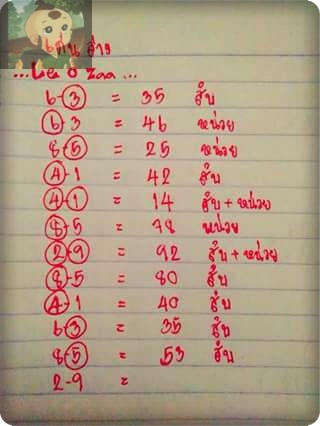 เด่น ล่าง
...Le o zaa...
6-3 = 35 สิบ
6-3 = 46 หน่วย
8-5 = 25 หน่วย
4-1 = 42 สิบ
4-1 = 14 สิบ+หน่วย
8-5 = 78 หน่วย
2-9 = 92 สิบ+หน่วย
8-5 = 80 สิบ
4-1 = 40 สิบ
6-3 = 35 สิบ
8-5 = 53 สิบ
2-9 =